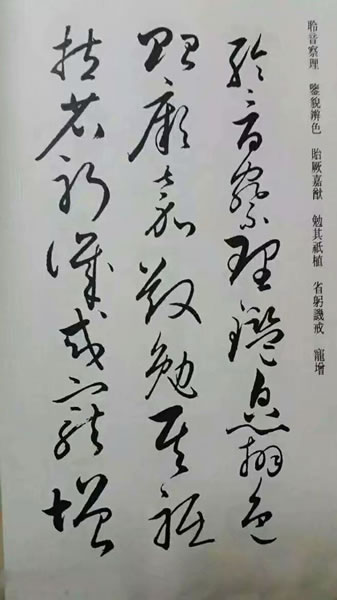 聆音察理 鑒貌辨色 貽厥嘉猷 勉其祗植 省躬譏戒 寵增
聆音察理鑑貌辨色
貽厥嘉猷勉其祗
植省躬譏戒寵增